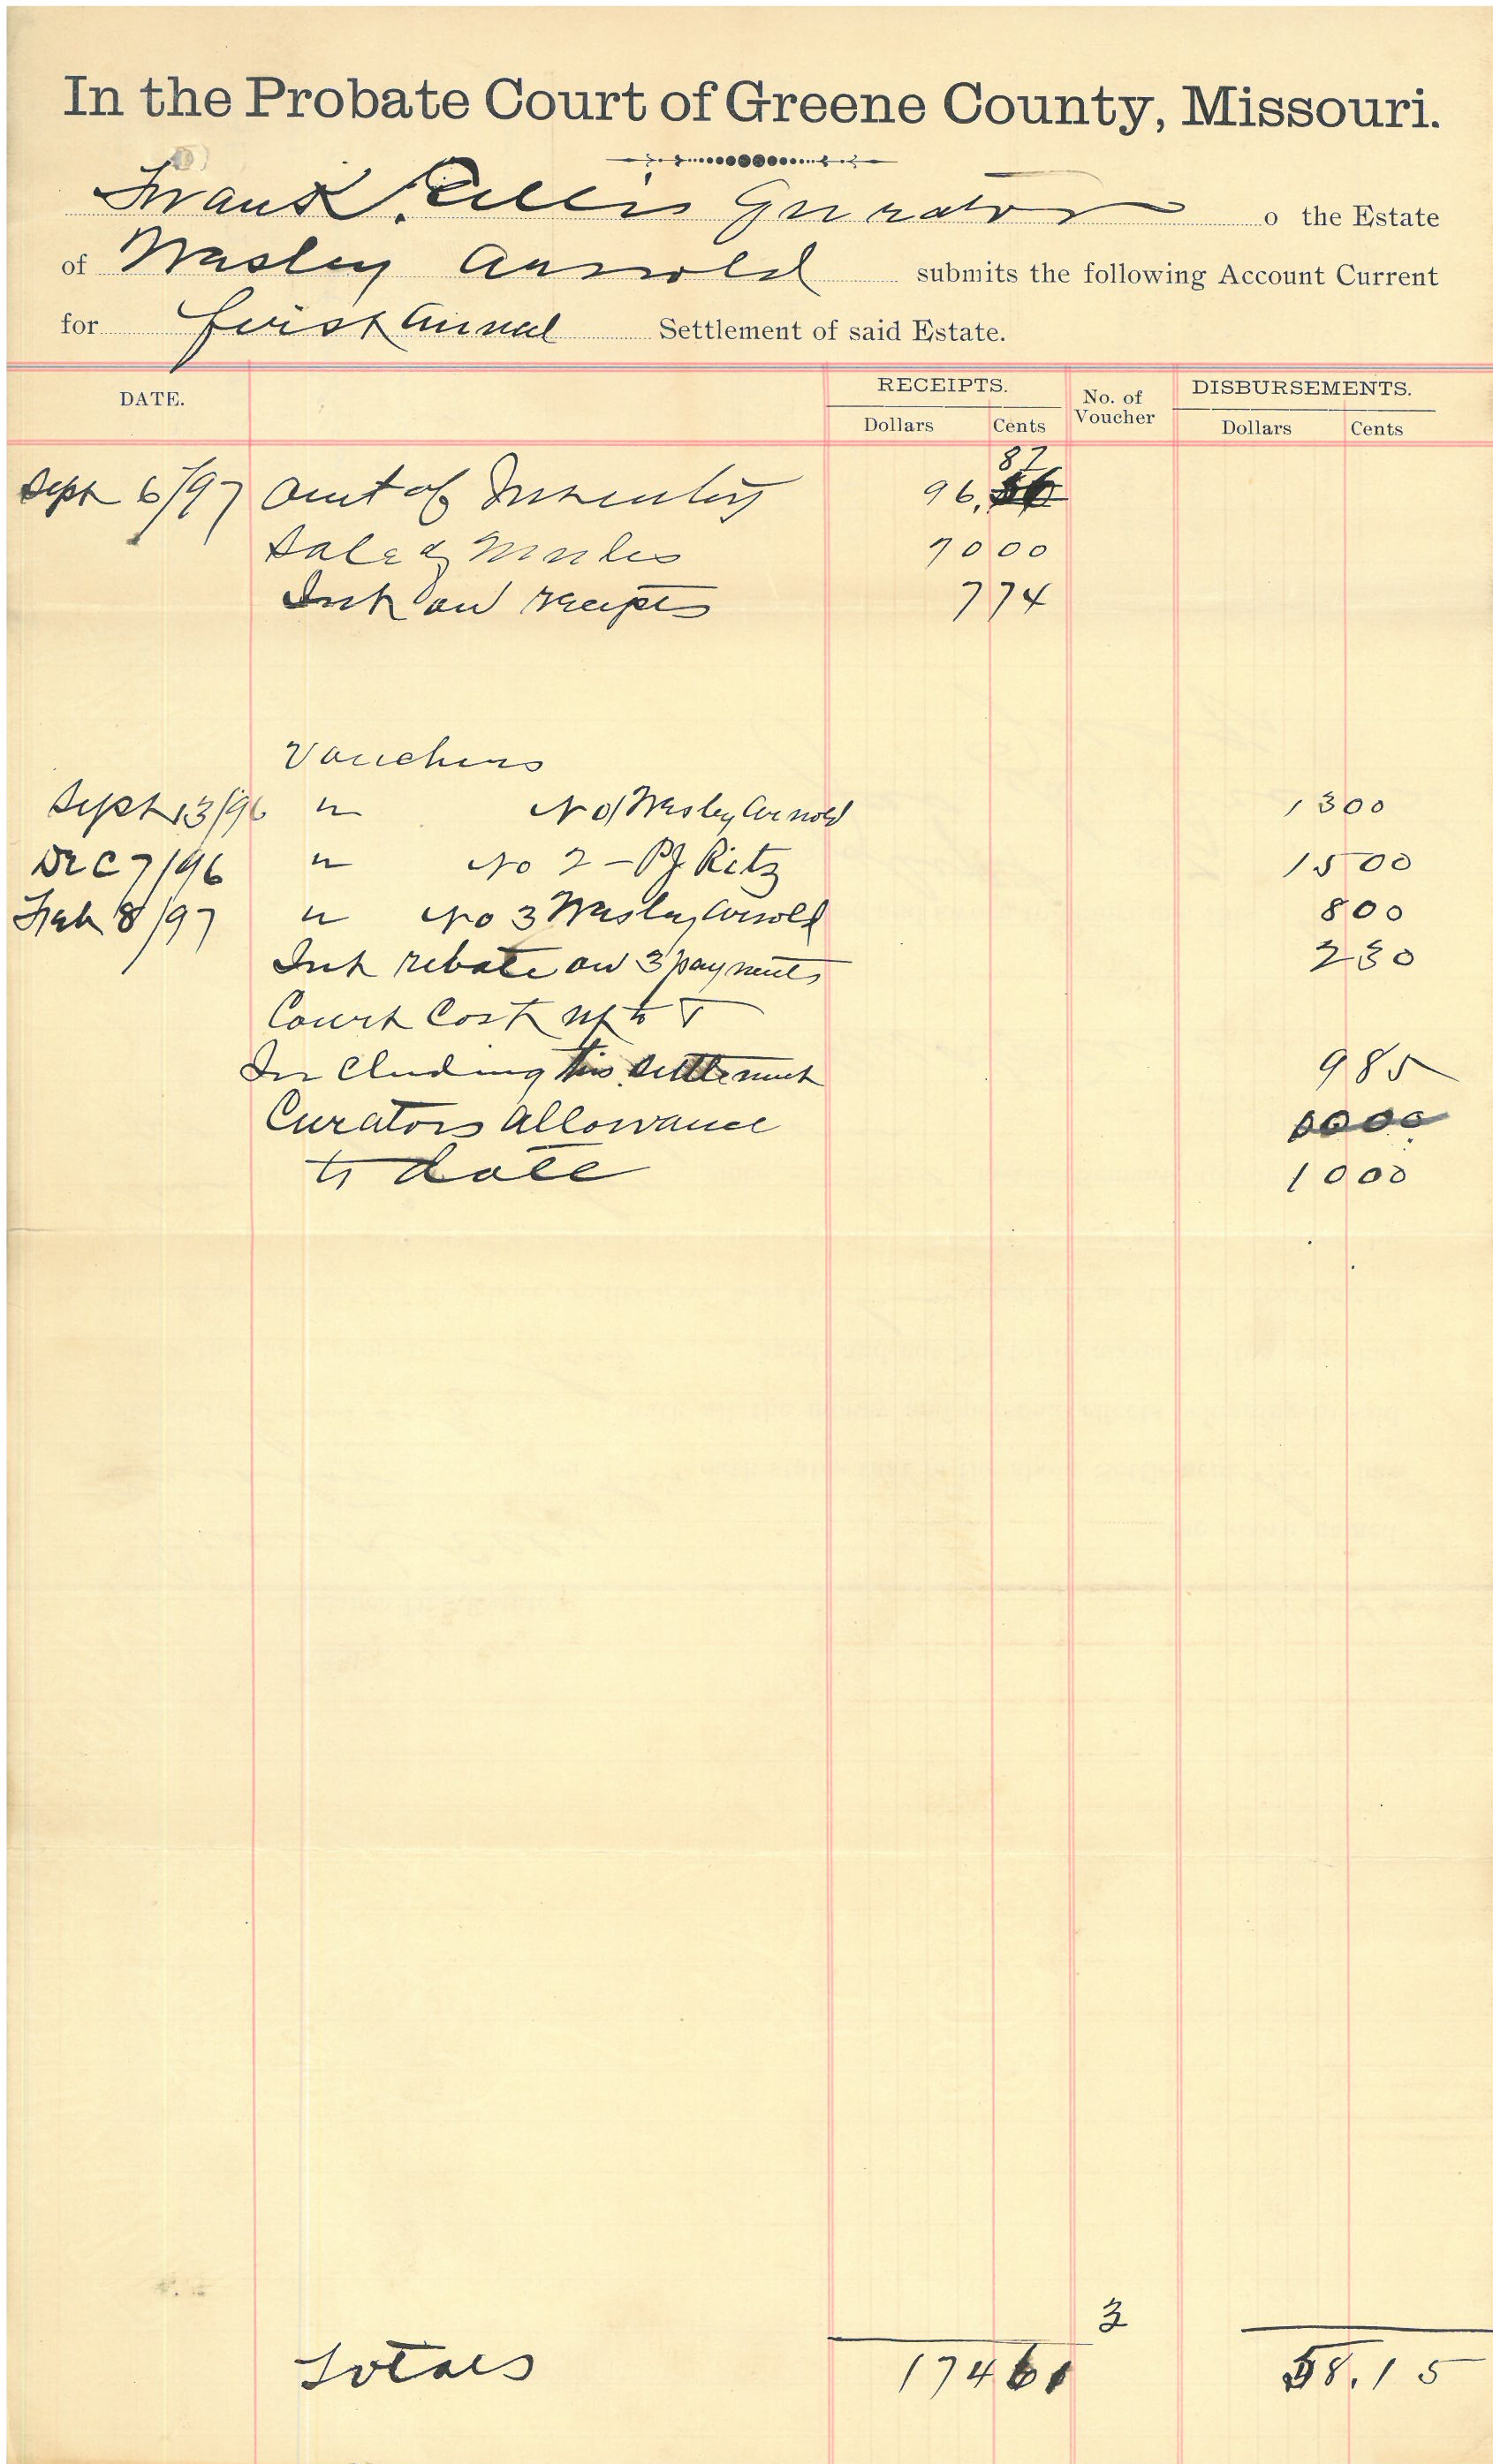 In the Probate Court of Greene County, Missouri.
Frank Ellis Gurator o the Estate
of Wesley Arnold submits the following Account Current
for first Annual Settlement of said Estate.
DATE. RECEIPTS. No. of Voucher DISBURSEMENTS.
Dollars Cents Dollars Cents
87
Sept 6/97 Amt of Inventory 96.
Sale of Mules 70 00
Int on receipts 7 74
Vouchers
Sept 13/96 " No 1 Wesley Arnold 13 00
Dec 7/96 " No 2 - PJ Ritz 15 00
Feb 8/97 " No 3 Wesley Arnold 8 00
Int rebate on 3 payments 2 30
Court Cost up to &
Including this settlement 9 85
Curators Allowance
to date 10 00
3
Totals 174 61 58.15